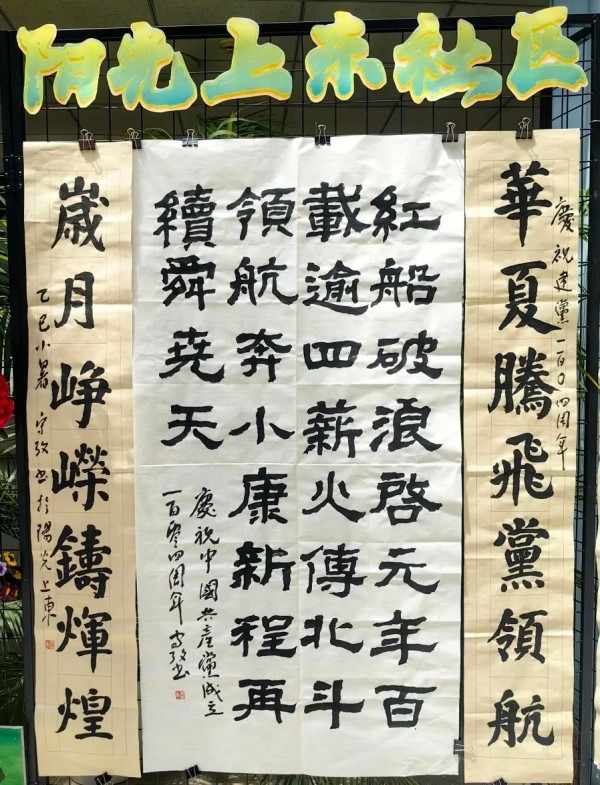 阳光上东社区
慶祝建黨一百〇四周年
華夏騰飛黨領航
紅船破浪啓元年百
載逾四薪火傳北斗
領航奔小康新程再
續舜尧天
慶祝中國共產黨成立
一百零四周年 书
嵗月崢嶸鑄輝煌
乙巳小暑 守 书於陽光上東